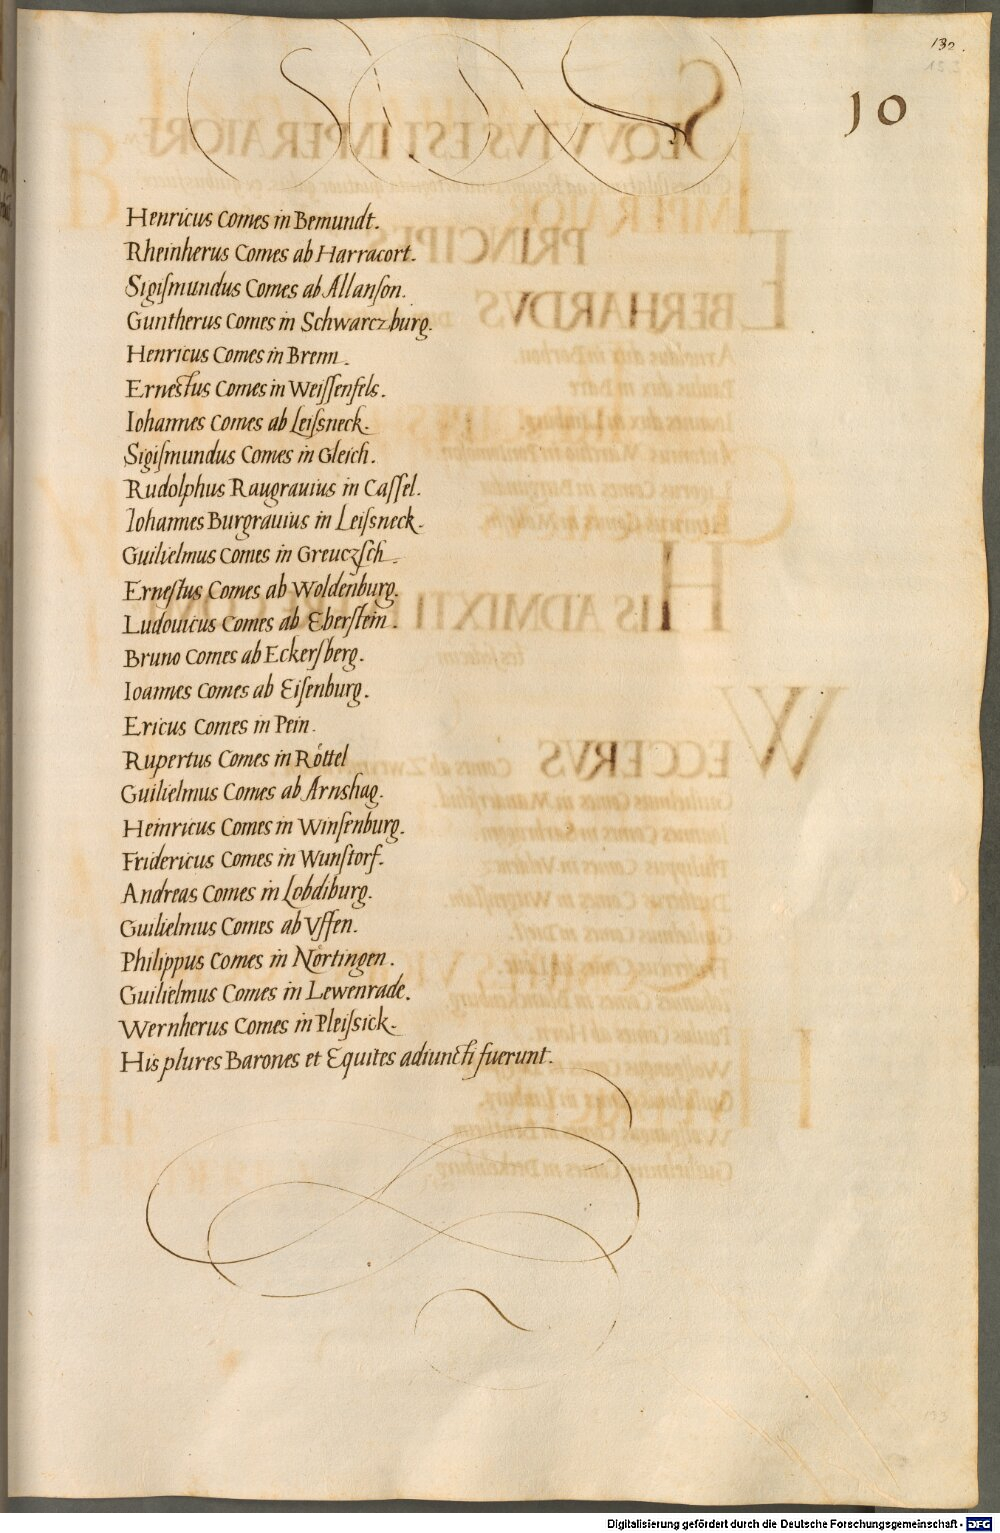 132.
10
Henricus Comes in Bemundt.
Rheinherus Comes ab Harracort.
Sigiſmundus Comes ab Allanſon.
Guntherus Comes in Schwarczburg.
Henricus Comes in Brenn.
Ernestus Comes in Weiſſenfels.
Iohannes Comes ab Leiſsneck.
Sigiſmundus Comes in Gleich.
Rudolphus Raugrauius in Caſſel.
Iohannes Burgrauius in Leiſsneck.
Guilielmus Comes in Greuczſch.
Erneſtus Comes ab Woldenburg.
Ludouicus Comes ab Eberſtein.
Bruno Comes ab Eckerſberg.
Ioannes Comes ab Eiſenburg.
Ericus Comes in Pein.
Rupertus Comes in Röttel
Guilielmus Comes ab Arnshag.
Heinricus Comes in Winſenburg.
Fridericus Comes in Wunſtorf.
Andreas Comes in Lobdiburg.
Guilielmus Comes ab Vffen.
Philippus Comes in Nörtingen.
Guilielmus Comes in Lewenrade.
Wernherus Comes in Pleiſsick.
His plures Barones et Equites adiuncti fuerunt.
Digitalisierung gefördert durch die Deutsche Forschungsgemeinschaft - DFG